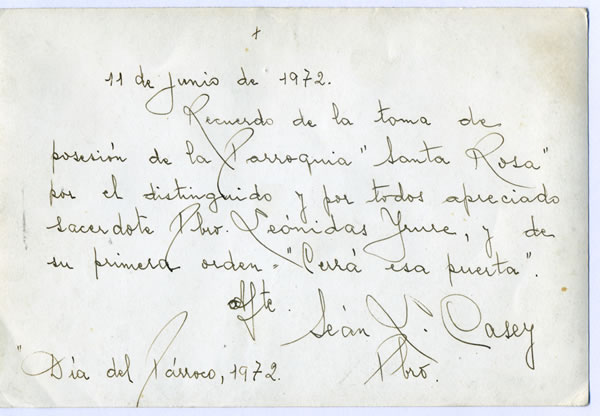 +
11 de junio de 1972.
Recuerdo de la toma de
posesión de la Parroquia "Santa Rosa"
por el distinguido y por todos apreciado
sacerdote Pbro. Leónidas Yrure, y de
su primera orden = "Cerrá esa puerta".
Afte.
Seán L. Casey
Pbro.
"Día del Párroco, 1972.